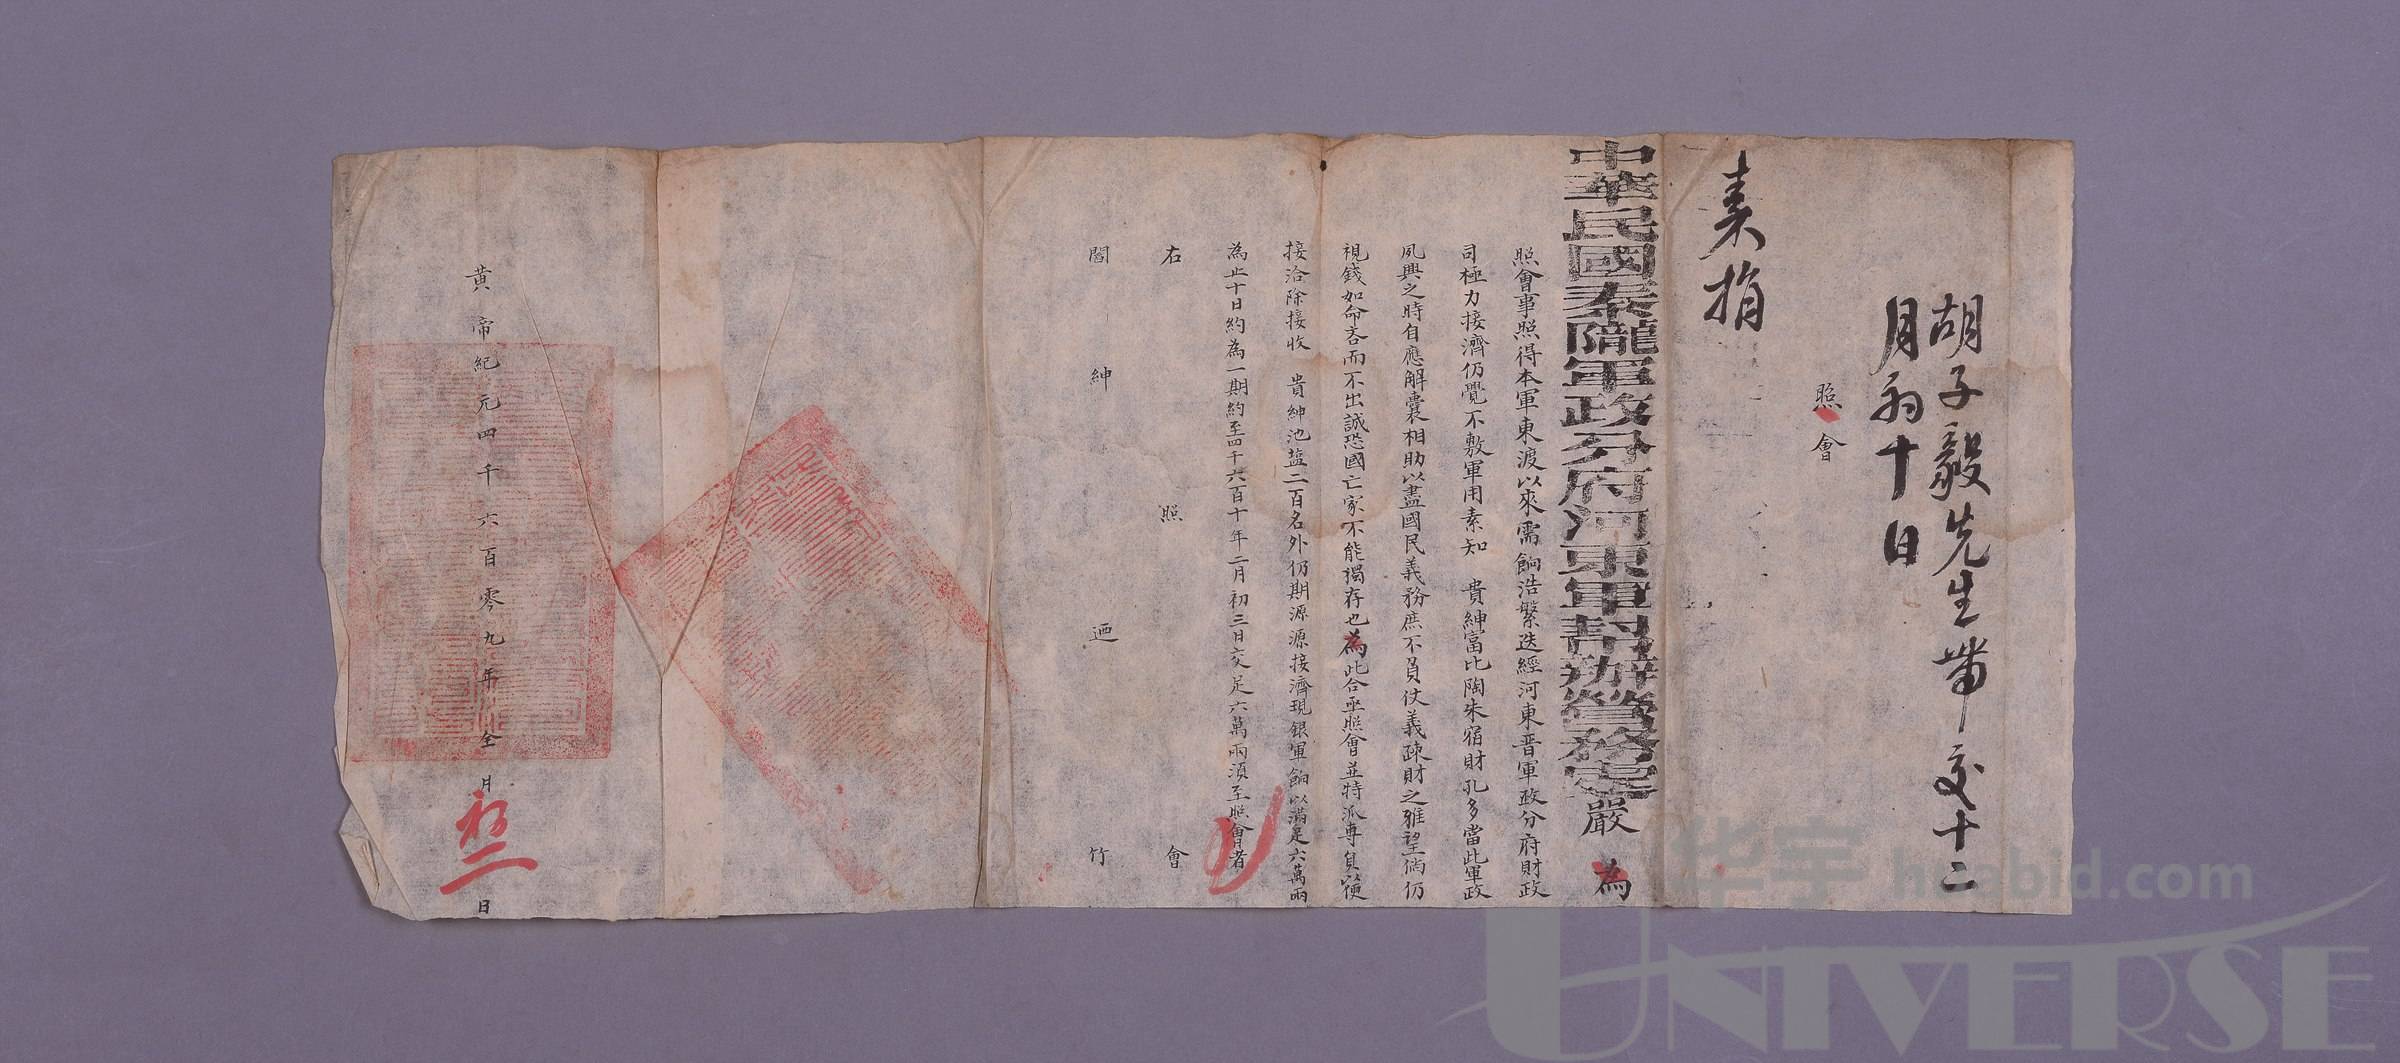 胡子毅先生帶交十二
月初十日
照會
素捐
中華民國秦隴軍政分府河東軍幫辦營務處嚴 為
照會事照得本軍東渡以來需餉浩繁迭經河東晋軍政分府財政
司極力接濟仍覺不敷軍用素知 貴紳富比陶朱宿財孔多當此軍政
夙興之時自應解囊相助以盡國民義務庶不負仗義疎財之雅望倘仍
視錢如命吝而不出誠恐國亡家不能獨存也為此合亟照會並特派專員以便
接洽除接收 貴紳池盐二百名外仍期源源接濟現銀軍餉以滿足六萬兩
為止十日約為一期約至四千六百十年二月初三日交足六萬兩須至照會者
右照會
閻紳迺竹
黄帝紀元四千六百零九年全月初二日
华宇 huabid.com
UNIVERSE